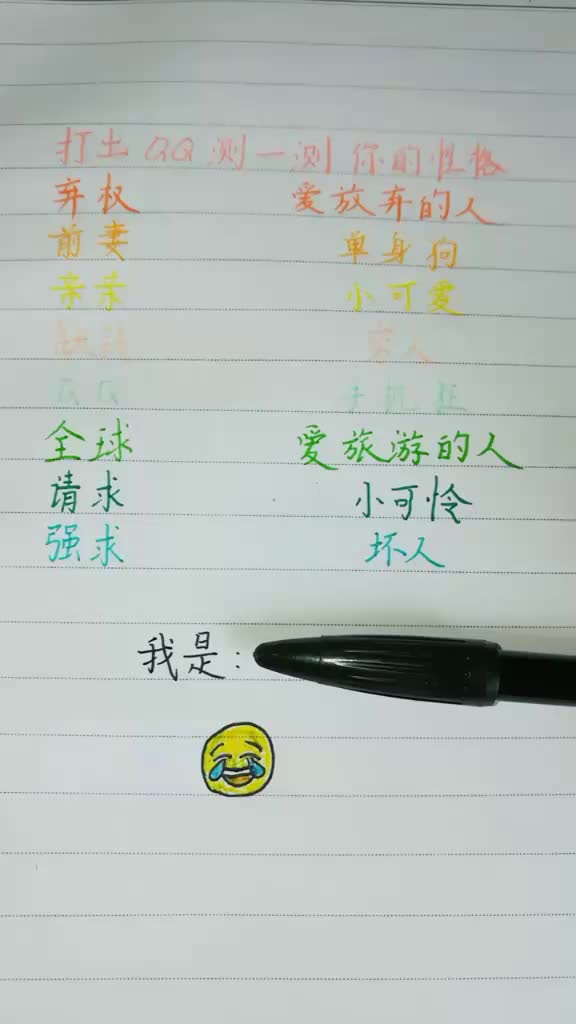 打土 QQ 测一测 你的性格
弃权 爱放弃的人
前妻 单身狗
亲亲 小可爱
缺钱 穷人
QQ 手机控
全球 爱旅游的人
请求 小可怜
强求 坏人
我是: